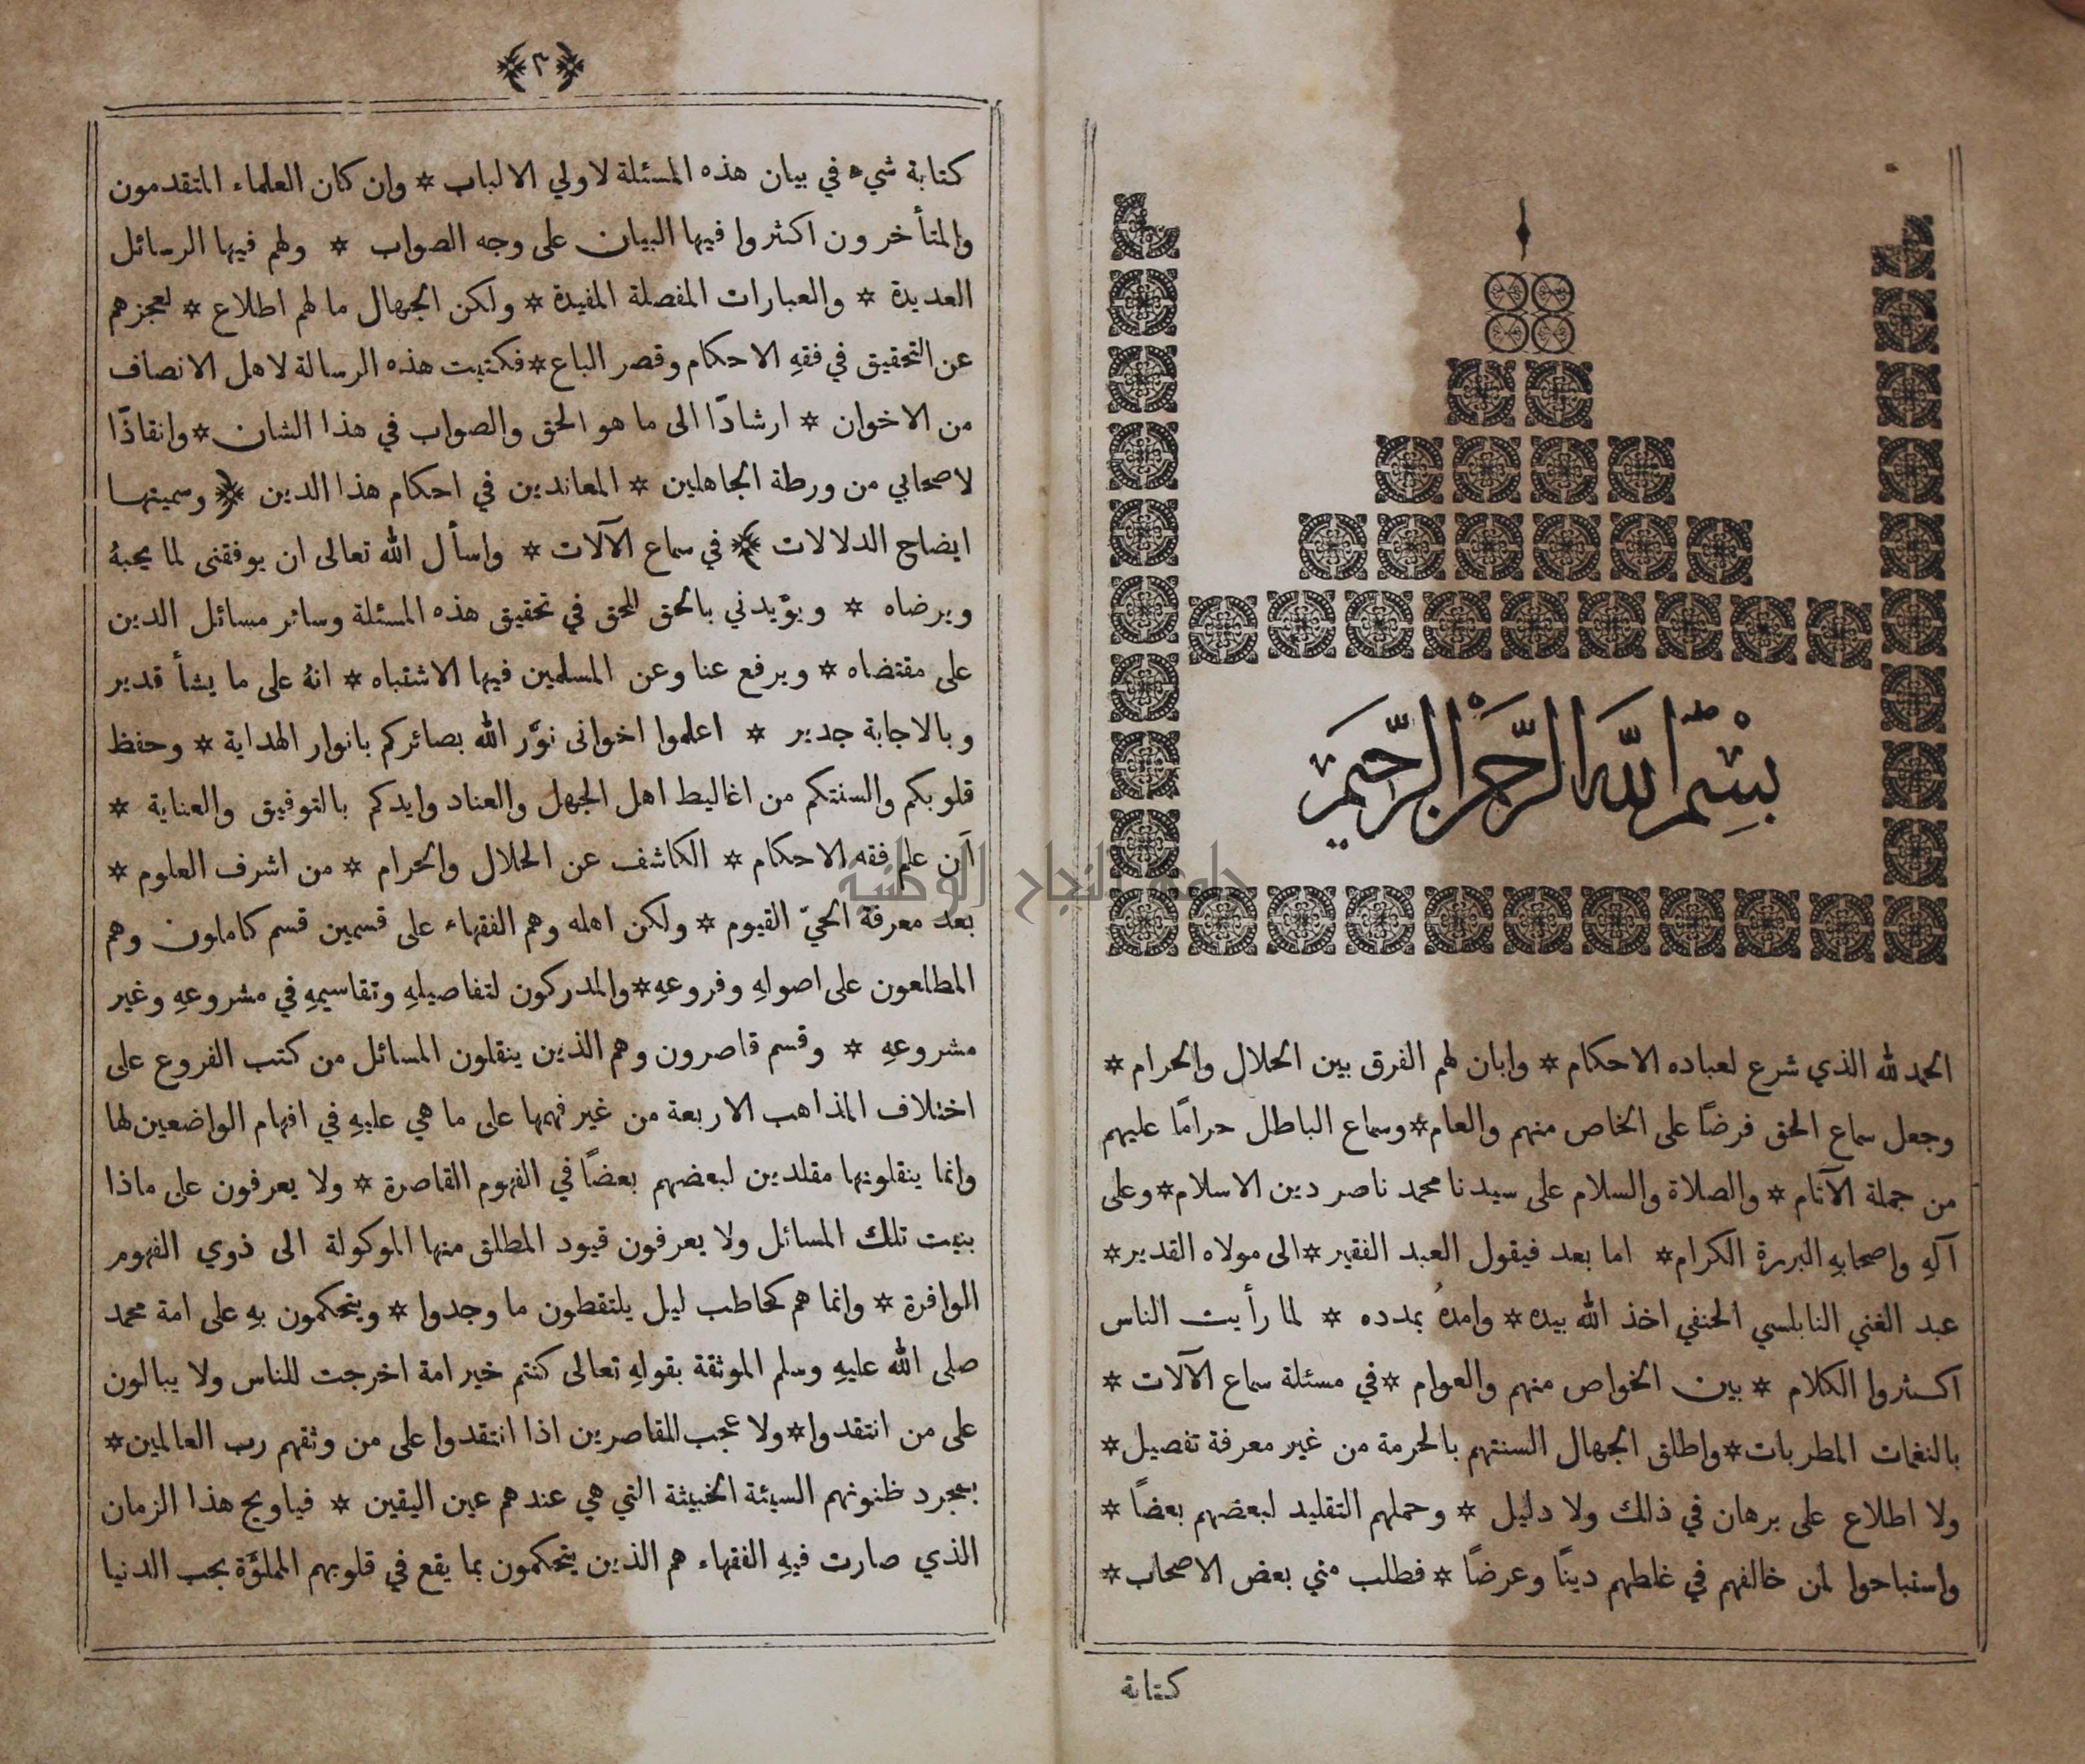 بِسْمِ اللَّهِ الرَّحْمَنِ الرَّحِيمِ
الحمد لله الذي شرع لعباده الاحكام * وابان لهم الفرق بين الحلال والحرام *
وجعل سماع الحق فرضًا على الخاص منهم والعام * وسماع الباطل حرامًا عليهم
من جملة الآثام * والصلاة والسلام على سيدنا محمد ناصر دين الاسلام * وعلى
آلهِ واصحابهِ البررة الكرام * اما بعد فيقول العبد الفقير * الى مولاه القدير *
عبد الغني النابلسي الحنفي اخذ الله بيده * وامدهُ بمدده * لما رأيت الناس
اكثروا الكلام * بين الخواص منهم والعوام * في مسئلة سماع الآلات *
بالنغمات المطربات * واطلق الجهال السنتهم بالحرمة من غير معرفة تفصيل *
ولا اطلاع على برهان في ذلك ولا دليل * وحملهم التقليد لبعضهم بعضًا *
واستباحوا لمن خالفهم في غلطهم دينًا وعرضًا * فطلب مني بعض الاصحاب *
كتابة
﴿٢﴾
كتابة شيء في بيان هذه المسئلة لاولي الالباب * وان كان العلماء المتقدمون
والمتأخرون اكثروا فيها البيان على وجه الصواب * ولهم فيها الرسائل
العديدة * والعبارات المفصلة المفيدة * ولكن الجهال ما لهم اطلاع * لعجزهم
عن التحقيق في فقهِ الاحكام وقصر الباع * فكتبت هذه الرسالة لاهل الانصاف
من الاخوان * ارشادًا الى ما هو الحق والصواب في هذا الشان * وانقاذًا
لاصحابي من ورطة الجاهلين * المعاندين في احكام هذا الدين ﴿ وسميتها
ايضاح الدلالات ﴾ في سماع الآلات * واسأل الله تعالى ان يوفقنى لما يحبهُ
ويرضاه * ويؤيدني بالحق للحق في تحقيق هذه المسئلة وسائر مسائل الدين
على مقتضاه * ويرفع عنا وعن المسلمين فيها الاشتباه * انهُ على ما يشأ قدير
وبالاجابة جدير * اعلموا اخوانى نوَّر الله بصائركم بانوار الهداية * وحفظ
قلوبكم والسنتكم من اغاليط اهل الجهل والعناد وايدكم بالتوفيق والعناية *
ان علم فقه الاحكام * الكاشف عن الحلال والحرام * من اشرف العلوم *
بعد معرفة الحيّ القيوم * ولكن اهله وهم الفقهاء على قسمين قسم كاملون وهم
المطلعون على اصولهِ وفروعهِ * والمدركون لتفاصيلهِ وتقاسيمهِ في مشروعهِ وغير
مشروعهِ * وقسم قاصرون وهم الذين ينقلون المسائل من كتب الفروع على
اختلاف المذاهب الاربعة من غير فهمها على ما هي عليهِ في افهام الواضعين لها
وانما ينقلونها مقلدين لبعضهم بعضًا في الفهوم القاصرة * ولا يعرفون على ماذا
بنيت تلك المسائل ولا يعرفون قيود المطلق منها الموكولة الى ذوي الفهوم
الوافرة * وانما هم كحاطب ليل يلتقطون ما وجدوا * ويتحكمون بهِ على امة محمد
صلى الله عليهِ وسلم الموثقة بقولهِ تعالى كنتم خير امة اخرجت للناس ولا يبالون
على من انتقدوا * ولا عجب للقاصرين اذا انتقدوا على من وثقهم رب العالمين *
بمجرد ظنونهم السيئة الخبيثة التي هي عندهم عين اليقين * فياويح هذا الزمان
الذي صارت فيهِ الفقهاء هم الذين يتحكمون بما يقع في قلوبهم المملوَّة بحب الدنيا
جامعة النجاح الوطنية